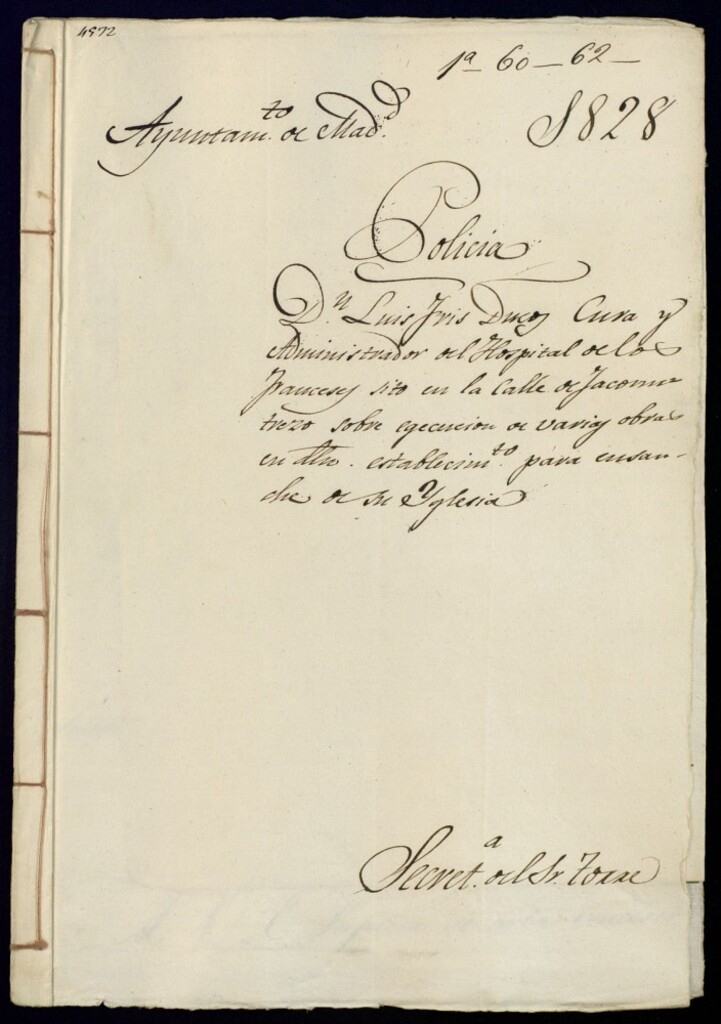 4972
1ª 60-62-
Ayuntam.to de Mad.d
1828
Policia
D.n Luis Fris Ducos Cura y
Administrador del Hospital de los
Franceses sito en la Calle de Jacome-
trezo sobre egecucion de varias obras
en dho. establecim.to para ensan-
che de su Yglesia
Secret.a del Sr. Torre